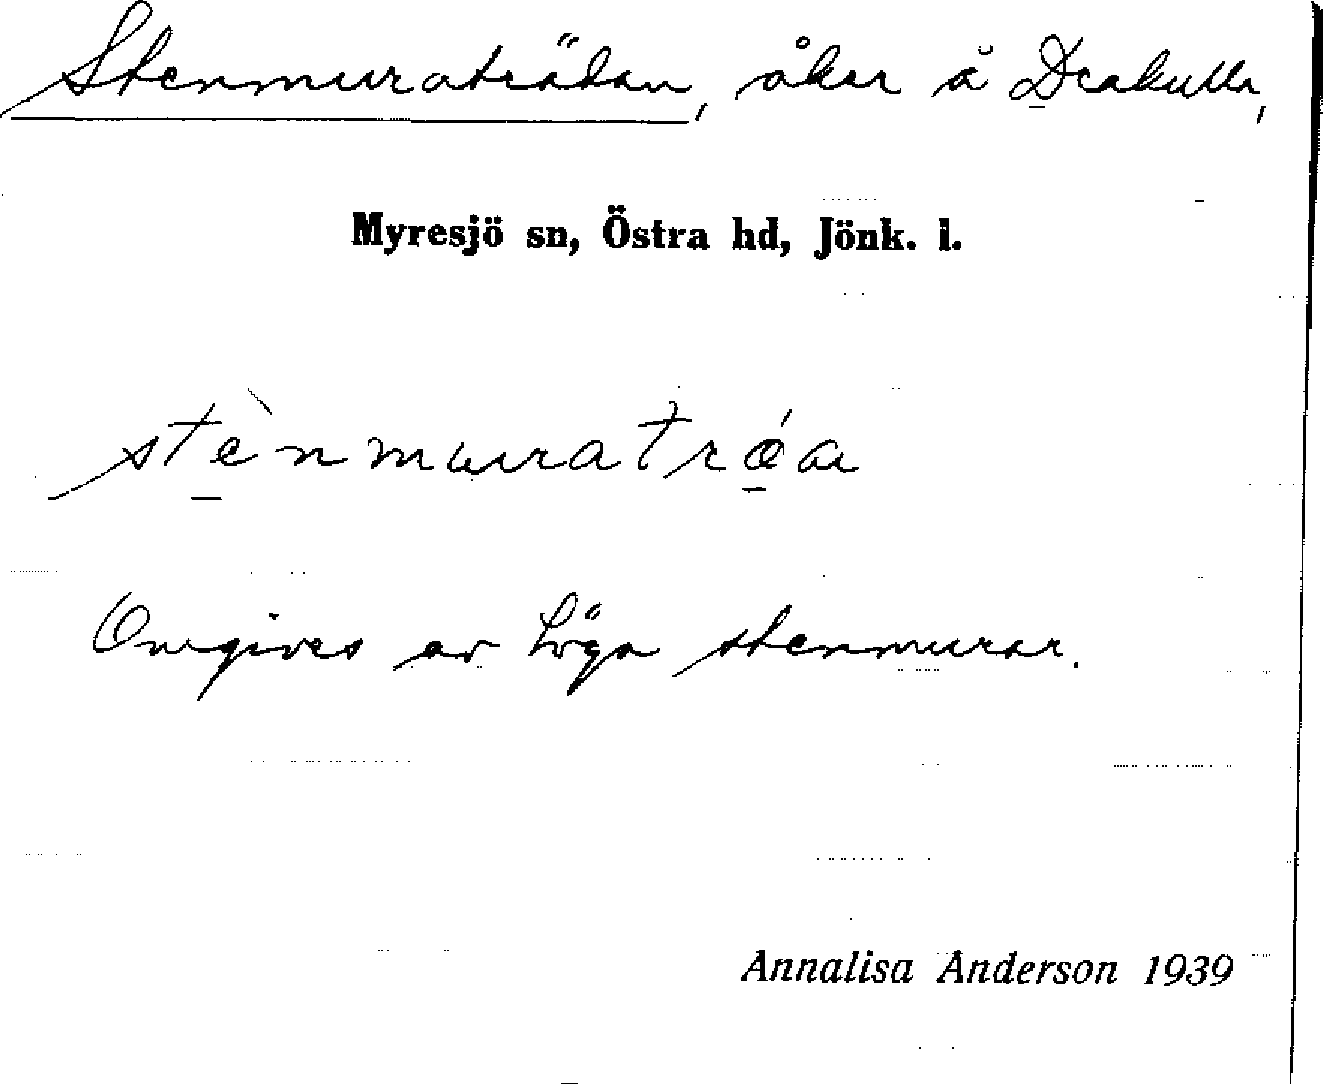 Stenmuraträdan, åker å Drakulla,
Myresjö sn, Östra hd, Jönk. l.
stènmuratrǽa
Omgives av höga stenmurar.
Annalisa Anderson 1939